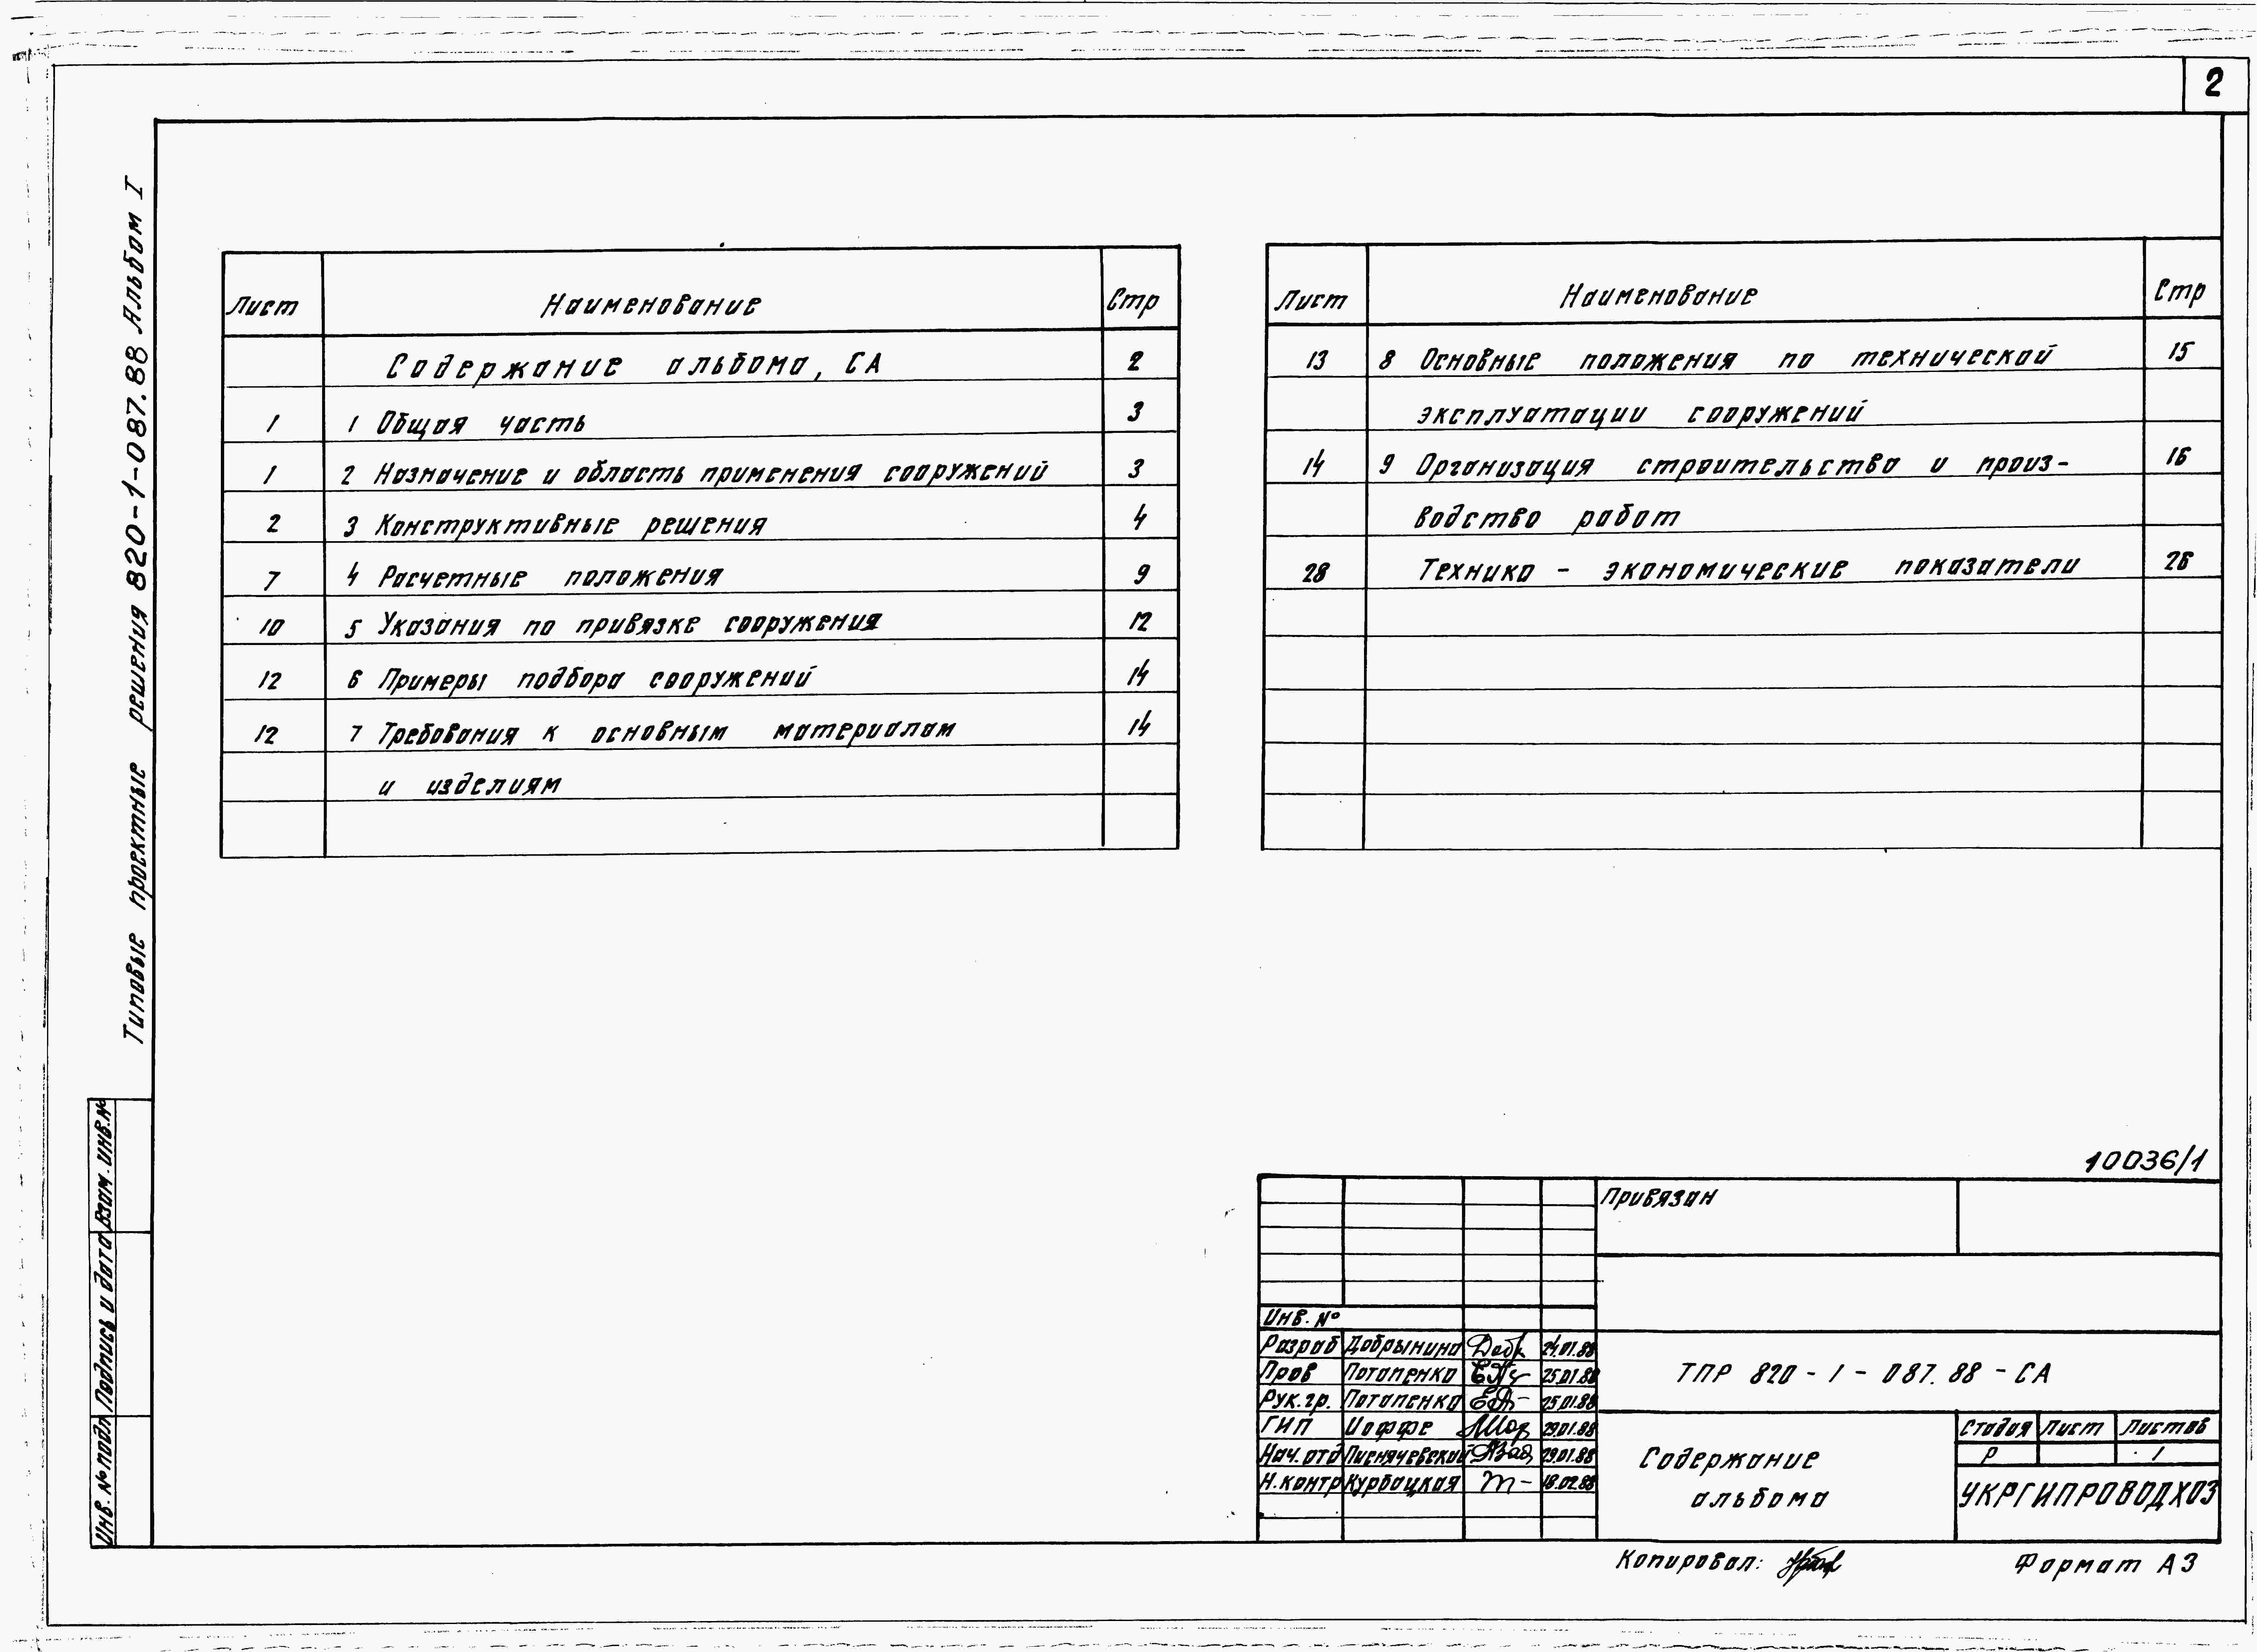 2
Типовые проектные решения 820-1-087.88 Альбом I
Лист Наименование Стр
Содержание альбома, СА 2
1 1 Общая часть 3
1 2 Назначение и область применения сооружений 3
2 3 Конструктивные решения 4
7 4 Расчетные положения 9
10 5 Указания по привязке сооружения 12
12 6 Примеры подбора сооружений 14
12 7 Требования к основным материалам 14
и изделиям
Лист Наименование Стр
13 8 Основные положения по технической 15
эксплуатации сооружений
14 9 Организация строительства и произ- 16
водство работ
28 Технико - экономические показатели 26
10036/1
Привязан
Инв. №
Разраб Добрынина 24.01.88
Пров Потапенко 25.01.88
Рук.гр. Потапенко 25.01.88
ГИП Иоффе 29.01.88
Нач.отд Писнячевский 29.01.88
Н.контр Курбацкая 18.02.88
ТПР 820-1-087.88-СА
Содержание
альбома
Стадия Лист Листов
Р 1
УКРГИПРОВОДХОЗ
Копировал:
Формат А3
Инв. № подл Подпись и дата Взам. инв. №